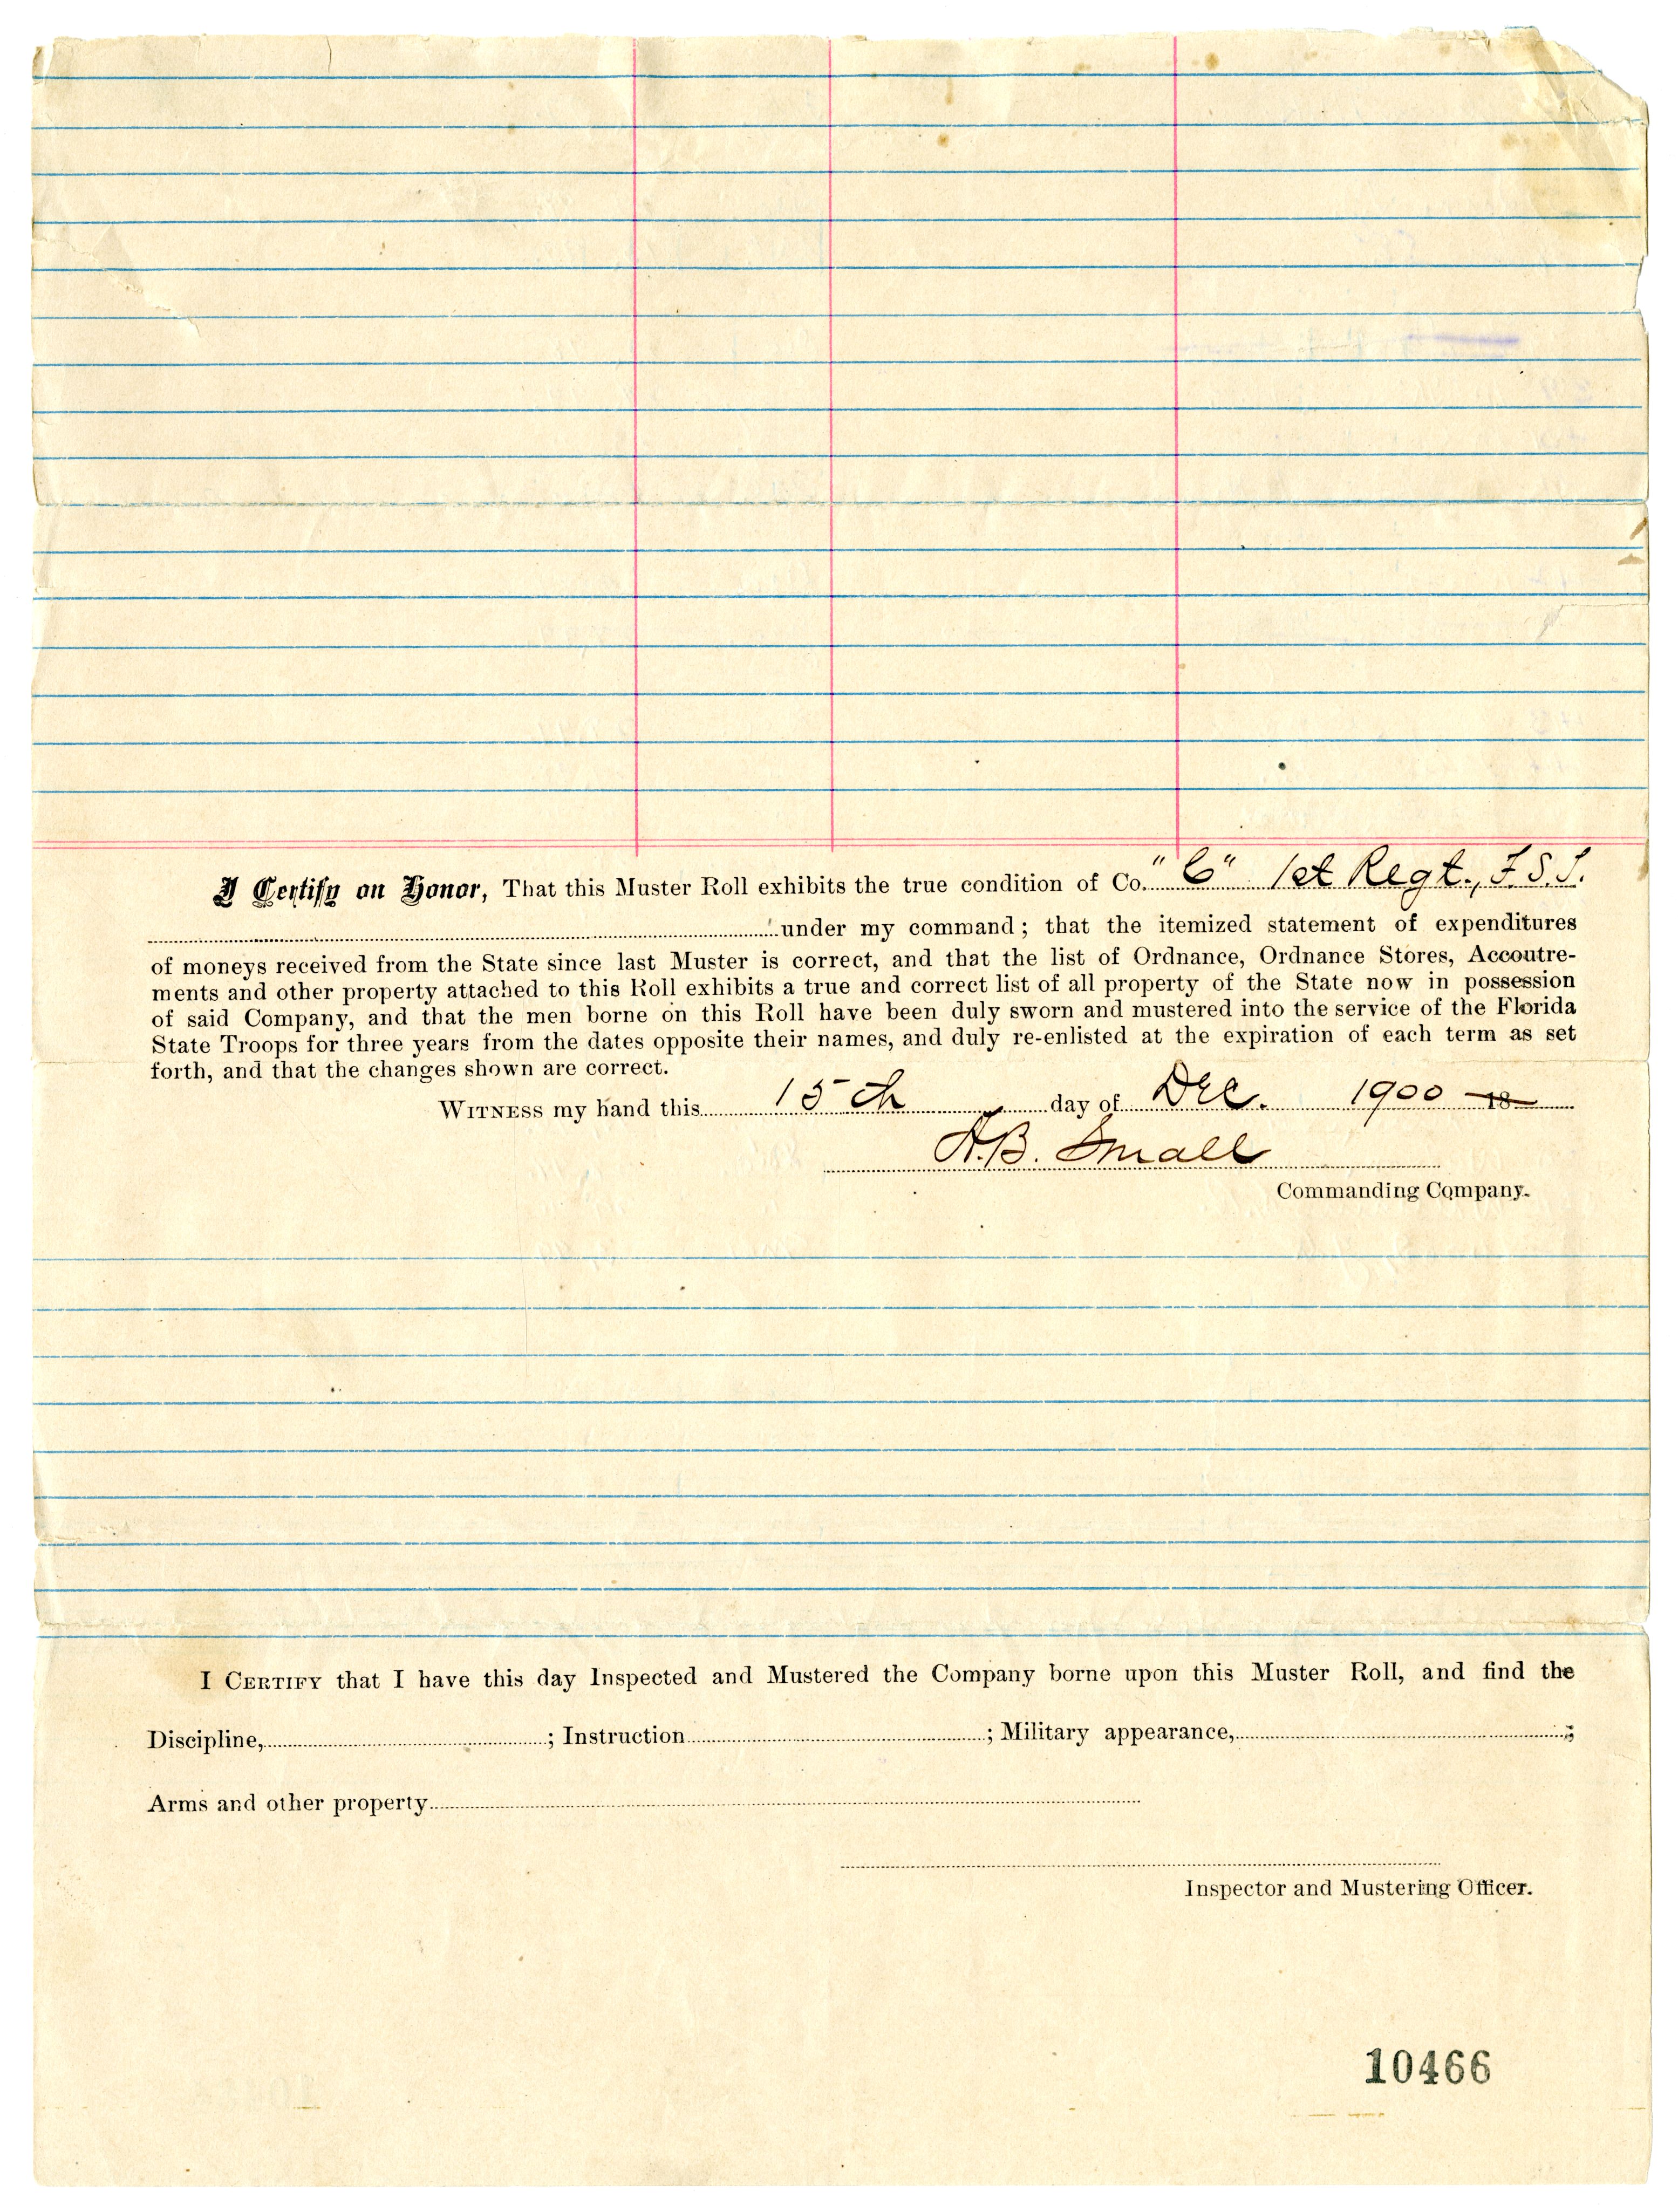 I Certify on Honor, That this Muster Roll exhibits the true condition of Co. "C" 1st Regt., F.S.T.
under my command; that the itemized statement of expenditures
of moneys received from the State since last Muster is correct, and that the list of Ordnance, Ordnance Stores, Accoutre-
ments and other property attached to this Roll exhibits a true and correct list of all property of the State now in possession
of said Company, and that the men borne on this Roll have been duly sworn and mustered into the service of the Florida
State Troops for three years from the dates opposite their names, and duly re-enlisted at the expiration of each term as set
forth, and that the changes shown are correct.
WITNESS my hand this 15th day of Dec. 1900 18
A.B. Small
Commanding Company.
I CERTIFY that I have this day Inspected and Mustered the Company borne upon this Muster Roll, and find the
Discipline, ; Instruction ; Military appearance, ;
Arms and other property
Inspector and Mustering Officer.
10466